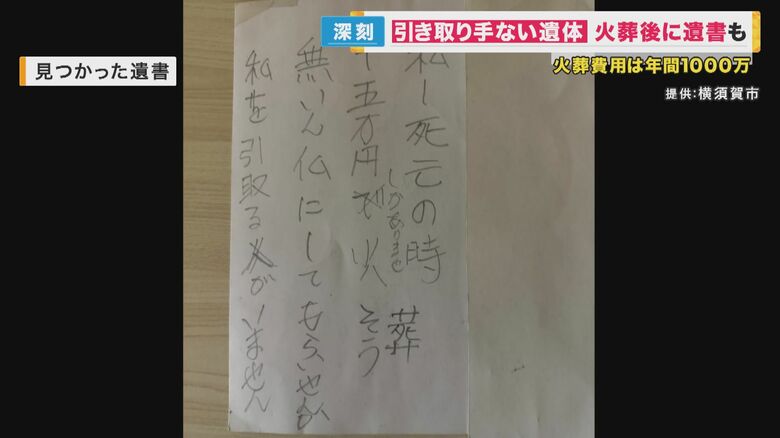 深刻
引き取り手ない遺体 火葬後に遺書も
火葬費用は年間1000万
提供:横須賀市
見つかった遺書
私し死亡の時
しかありませ
葬
十五万円で火そう
無いん仏にしてもらいせんか
私を引取る人がいません